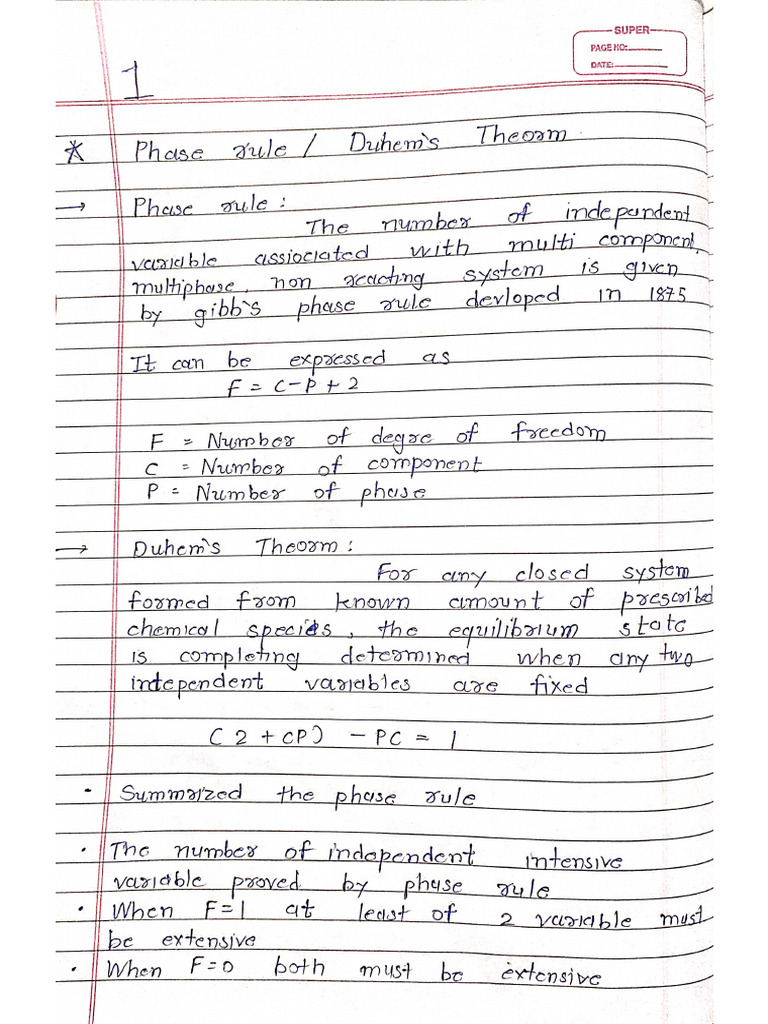 SUPER
PAGE NO:
DATE:
1
* Phase rule / Duhem's Theorm
→ Phase rule :
The number of independent
variable assiociated with multi component,
multiphase, non reacting system is given
by gibb's phase rule devloped in 1875
It can be expressed as
F = C-P+2
F = Number of degre of freedom
C = Number of component
P = Number of phase
→ Duhem's Theorm :
For any closed system
formed from known amount of prescribed
chemical species, the equilibrium state
is completing determined when any two
intependent variables are fixed
(2 + CP) - PC = 1
• Summarized the phase rule
• The number of independent intensive
variable proved by phase rule
• When F=1 at least of 2 variable must
be extensive
• When F=0 both must be extensive